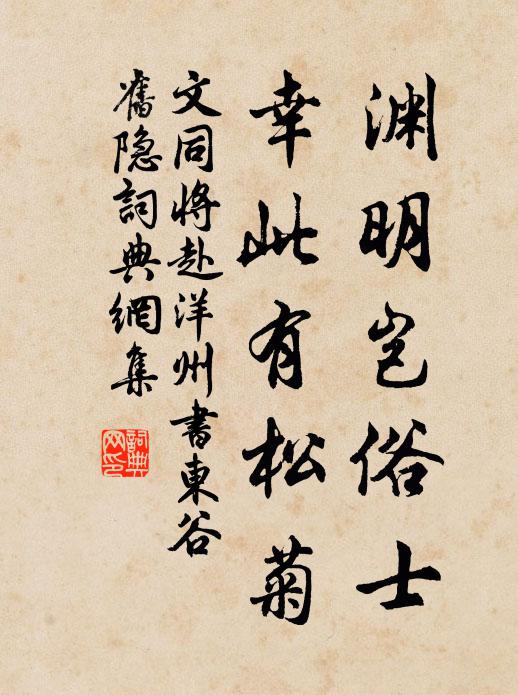 渊明岂俗士
幸此有松菊
文同将赴洋州書東谷
舊隐詞典網集
詞典
网印